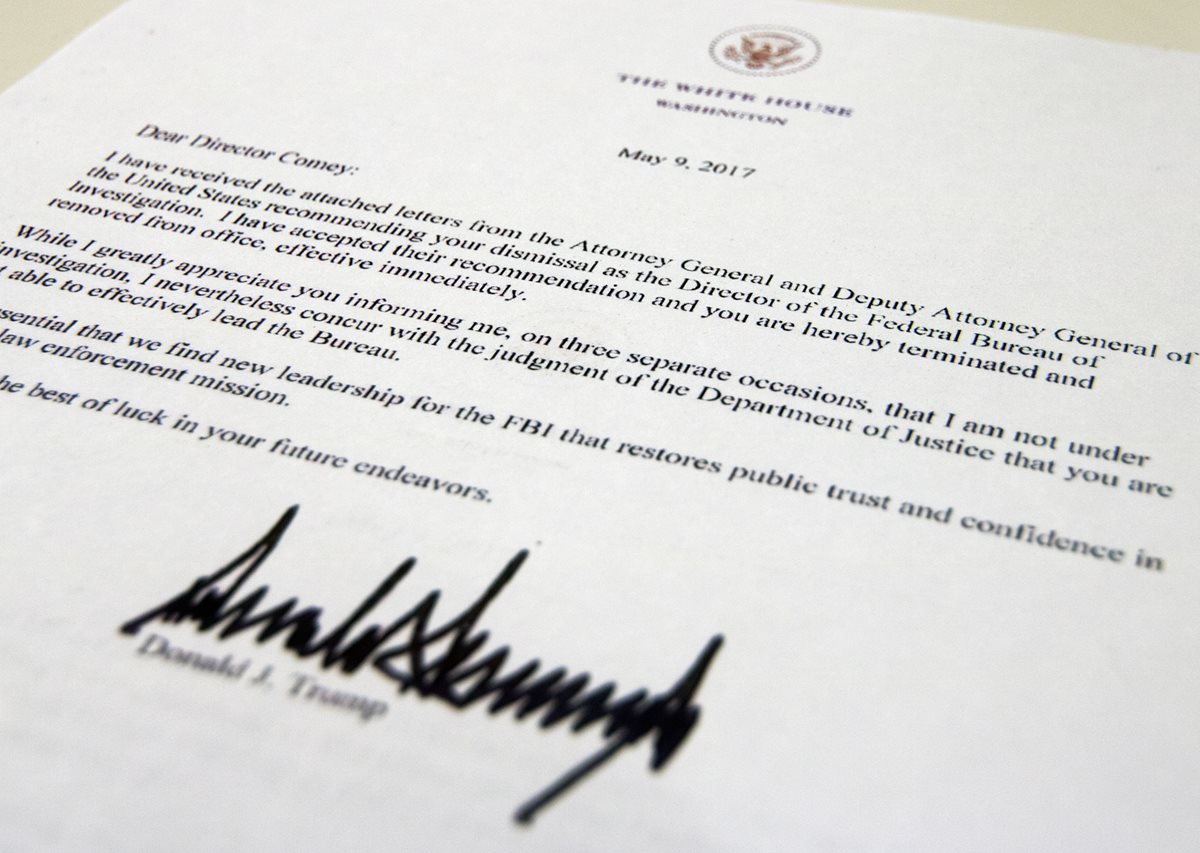 THE WHITE HOUSE
WASHINGTON
May 9, 2017
Dear Director Comey:
I have received the attached letters from the Attorney General and Deputy Attorney General of
the United States recommending your dismissal as the Director of the Federal Bureau of
Investigation. I have accepted their recommendation and you are hereby terminated and
removed from office, effective immediately.
While I greatly appreciate you informing me, on three separate occasions, that I am not under
investigation, I nevertheless concur with the judgment of the Department of Justice that you are
able to effectively lead the Bureau.
ssential that we find new leadership for the FBI that restores public trust and confidence in
law enforcement mission.
he best of luck in your future endeavors.
Donald J. Trump